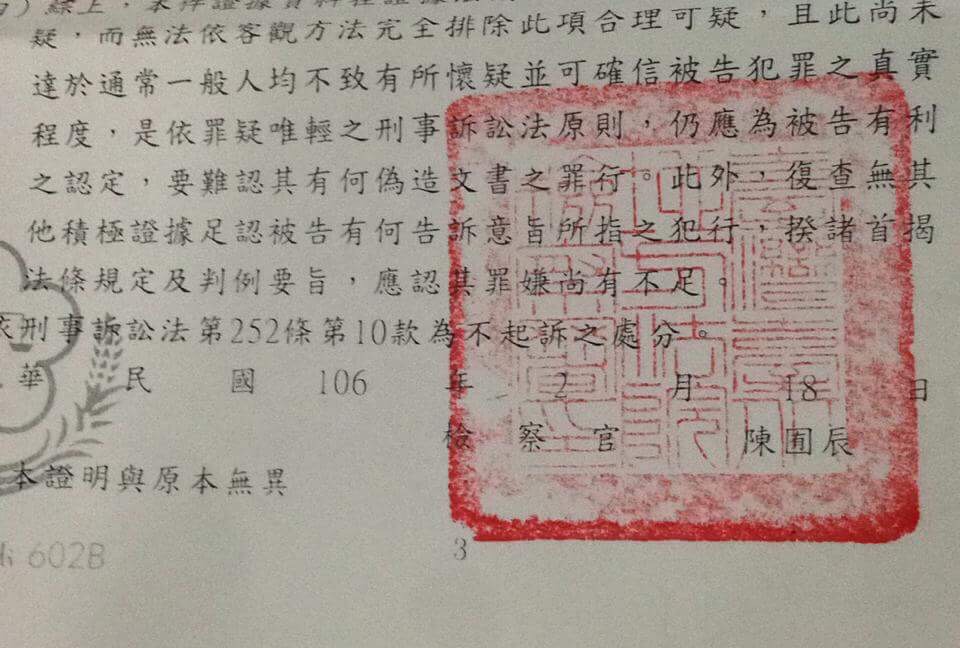 綜上，本件證據資料
疑，而無法依客觀方法完全排除此項合理可疑，且此尚未
達於通常一般人均不致有所懷疑並可確信被告犯罪之真實
程度，是依罪疑唯輕之刑事訴訟法原則，仍應為被告有利
之認定，要難認其有何偽造文書之罪行。此外，復查無其
他積極證據足認被告有何告訴意旨所指之犯行，揆諸首揭
法條規定及判例要旨，應認其罪嫌尚有不足。
依刑事訴訟法第252條第10款為不起訴之處分。
華 民 國 106 年 2 月 18 日
檢 察 官 陳囿辰
本證明與原本無異
602B
3